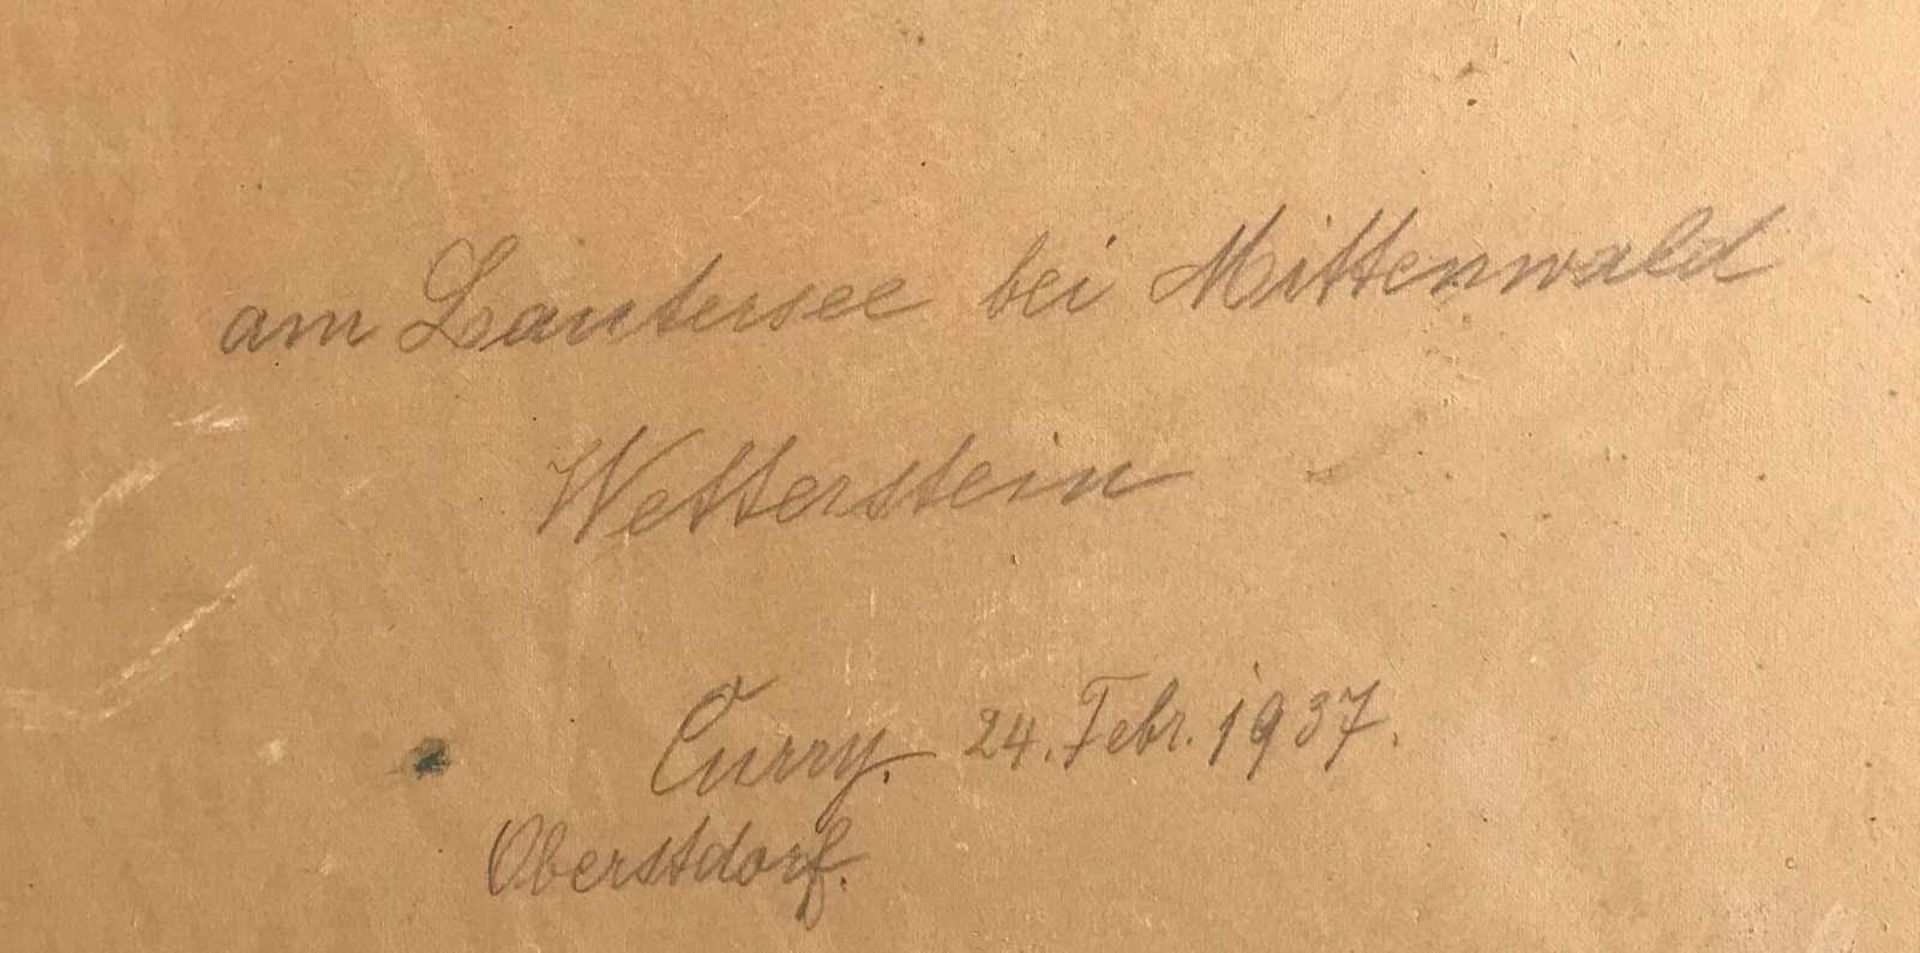 am Lautersee bei Mittenwald
Wetterstein
Curry. 24. Febr. 1937.
Oberstdorf.